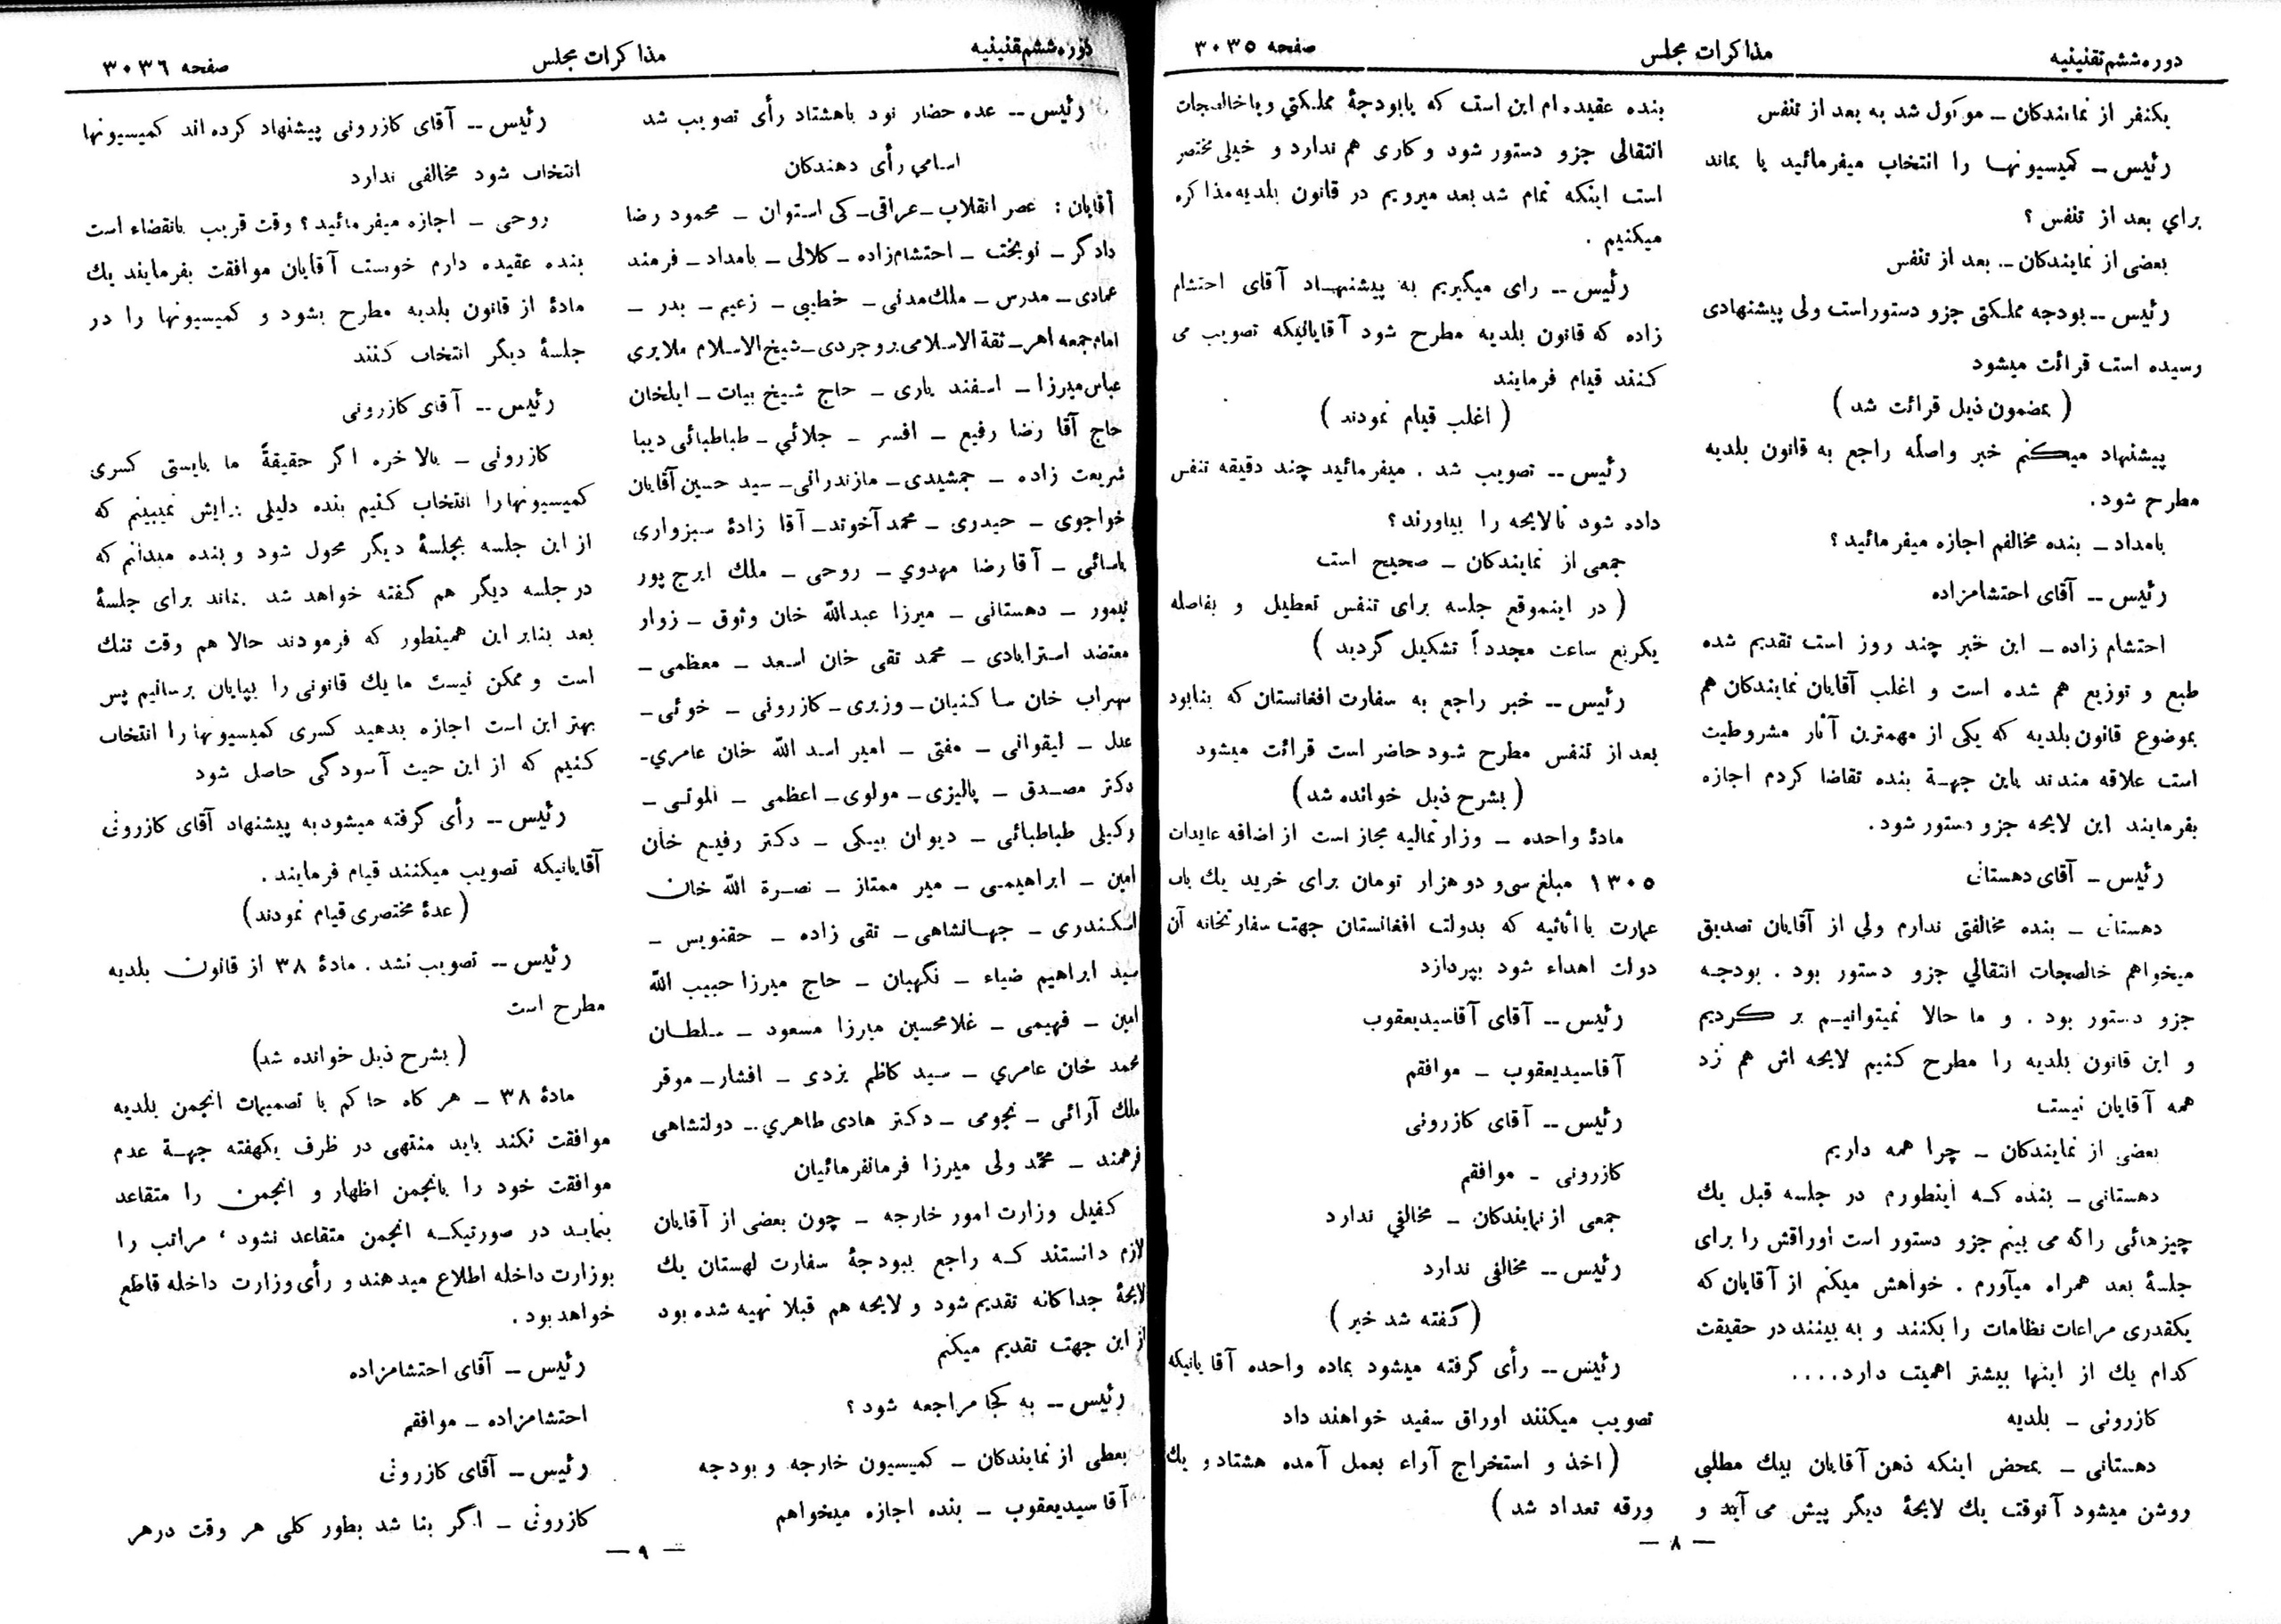 دوره ششم تقنینیه
مذاکرات مجلس
صفحه ۳۰۳۵
یکنفر از نمایندکان ــ موکول شد به بعد از تنفس
رئیس ــ کمیسیونها را انتخاب میفرمائید یا بماند
برای بعد از تنفس ؟
بعضی از نمایندکان ــ بعد از تنفس
رئیس ــ بودجه مملکتی جزو دستور است ولی پیشنهادی
رسیده است قرائت میشود
( بمضمون ذیل قرائت شد )
پیشنهاد میکنم خبر واصله راجع به قانون بلدیه
مطرح شود.
بامداد ــ بنده مخالفم اجازه میفرمائید ؟
رئیس ــ آقای احتشامزاده
احتشام زاده ــ این خبر چند روز است تقدیم شده
طبع و توزیع هم شده است و اغلب آقایان نمایندکان هم
بموضوع قانون بلدیه که یکی از مهمترین آثار مشروطیت
است علاقه مندند باین جهة بنده تقاضا کردم اجازه
بفرمایند این لایحه جزو دستور شود.
رئیس ــ آقای دهستانی
دهستانی ــ بنده مخالفتی ندارم ولی از آقایان تصدیق
میخواهم خالصجات انتقالی جزو دستور بود . بودجه
جزو دستور بود . و ما حالا نمیتوانیم بر گردیم
و این قانون بلدیه را مطرح کنیم لایحه اش هم نزد
همه آقایان نیست
بعضی از نمایندکان ــ چرا همه داریم
دهستانی ــ بنده که اینطورم در جلسه قبل یك
چیزهائی را که می بینم جزو دستور است اوراقش را برای
جلسهٔ بعد همراه میآورم . خواهش میکنم از آقایان که
یکقدری مراعات نظامات را بکنند و به بینند در حقیقت
کدام یك از اینها بیشتر اهمیت دارد....
کازرونی ــ بلدیه
دهستانی ــ بمحض اینکه ذهن آقایان بیك مطلبی
روشن میشود آنوقت یك لایحهٔ دیگر پیش می آید و
بنده عقیده‌ام این است که یا بودجهٔ مملکتی و یا خالصجات
انتقالی جزو دستور شود و کاری هم ندارد و خیلی مختصر
است اینکه تمام شد بعد میرویم در قانون بلدیه مذاکره
میکنیم .
رئیس ــ رای میگیریم به پیشنهاد آقای احتشام
زاده که قانون بلدیه مطرح شود آقایانیکه تصویب می
کنند قیام فرمایند
( اغلب قیام نمودند )
رئیس ــ تصویب شد . میفرمائید چند دقیقه تنفس
داده شود تا لایحه را بیاورند؟
جمعی از نمایندکان ــ صحیح است
( در اینموقع جلسه برای تنفس تعطیل و بفاصله
یکربع ساعت مجدداً تشکیل گردید )
رئیس ــ خبر راجع به سفارت افغانستان که بنا بود
بعد از تنفس مطرح شود حاضر است قرائت میشود
( بشرح ذیل خوانده شد )
مادهٔ واحده ــ وزارتمالیه مجاز است از اضافه عایدات
۱۳۰۵ مبلغ سی و دو هزار تومان برای خرید یك باب
عمارت با أثاثیه که بدولت افغانستان جهت سفارتخانه آن
دولت اهداء شود بپردازد
رئیس ــ آقای آقاسیدیعقوب
آقاسیدیعقوب ــ موافقم
رئیس ــ آقای کازرونی
کازرونی ــ موافقم
جمعی از نمایندکان ــ مخالفی ندارد
رئیس ــ مخالفی ندارد
( گفته شد خیر )
رئیس ــ رأی گرفته میشود بماده واحده آقایانیکه
تصویب میکنند اوراق سفید خواهند داد
( اخذ و استخراج آراء بعمل آمده هشتاد و یك
ورقه تعداد شد )
— ۸ —
دوره ششم تقنینیه
مذاکرات مجلس
صفحه ۳۰۳۶
رئیس ــ عده حضار نود باهشتاد رأی تصویب شد
اسامی رأی دهندکان
آقایان : عصر انقلاب ــ عراقی ــ کی استوان ــ محمود رضا
دادکر ــ نوبخت ــ احتشام‌زاده ــ کلالی ــ بامداد ــ فرمند
عمادی ــ مدرس ــ ملك‌مدنی ــ خطیبی ــ زعیم ــ بدر ــ
امام جمعه اهر ــ ثقة الاسلامی بروجردی ــ شیخ الاسلام ملایری
عباس میرزا ــ اسفند یاری ــ حاج شیخ بیات ــ ایلخان
حاج آقا رضا رفیع ــ افسر ــ جلائی ــ طباطبائی دیبا
شریعت زاده ــ جمشیدی ــ مازندرانی ــ سید حسین آقایان
خواجوی ــ حیدری ــ محمد آخوند ــ آقا زادهٔ سبزواری
یاسائی ــ آقا رضا مهدوی ــ روحی ــ ملك ایرج پور
تیمور ــ دهستانی ــ میرزا عبدالله خان وثوق ــ زوار
معتضد استرابادی ــ محمد تقی خان اسعد ــ معظمی ــ
سهراب خان ساکنیان ــ وزیری ــ کازرونی ــ خوئی ــ
عدل ــ لیقوانی ــ مفتی ــ امیر اسد الله خان عامری ــ
دکتر مصدق ــ پالیزی ــ مولوی ــ اعظمی ــ الموتی ــ
وکیلی طباطبائی ــ دیوان بیکی ــ دکتر رفیع خان
امین ــ ابراهیمی ــ میر ممتاز ــ نصرة الله خان
اسکندری ــ جهانشاهی ــ تقی زاده ــ حقنویس ــ
سید ابراهیم ضیاء ــ نگهبان ــ حاج میرزا حبیب الله
امین ــ فهیمی ــ غلامحسین میرزا مسعود ــ سلطان
محمد خان عامری ــ سید کاظم یزدی ــ افشار ــ موقر
ملك آرائی ــ نجومی ــ دکتر هادی طاهری ــ دولتشاهی
فرهمند ــ محمّد ولی میرزا فرمانفرمائیان
کفیل وزارت امور خارجه ــ چون بعضی از آقایان
لازم دانستند که راجع ببودجهٔ سفارت لهستان یك
لایحهٔ جداکانه تقدیم شود و لایحه هم قبلا تهیه شده بود
از این جهت تقدیم میکنم
رئیس ــ به کجا مراجعه شود ؟
بعطی از نمایندکان ــ کمیسیون خارجه و بودجه
آقاسیدیعقوب ــ بنده اجازه میخواهم
رئیس ــ آقای کازرونی پیشنهاد کرده اند کمیسیونها
انتخاب شود مخالفی ندارد
روحی ــ اجازه میفرمائید ؟ وقت قریب بانقضاء است
بنده عقیده دارم خوبست آقایان موافقت بفرمایند یك
مادهٔ از قانون بلدیه مطرح بشود و کمیسیونها را در
جلسهٔ دیگر انتخاب کنند
رئیس ــ آقای کازرونی
کازرونی ــ بالاخره اگر حقیقةً ما بایستی کسری
کمیسیونها را انتخاب کنیم بنده دلیلی برایش نمیبینم که
از این جلسه بجلسهٔ دیگر محول شود و بنده میدانم که
در جلسه دیگر هم گفته خواهد شد بماند برای جلسهٔ
بعد بنابر این همینطور که فرمودند حالا هم وقت تنك
است و ممکن نیست ما یك قانونی را بپایان برسانیم پس
بهتر این است اجازه بدهید کسری کمیسیونها را انتخاب
کنیم که از این حیث آسودگی حاصل شود
رئیس ــ رأی گرفته میشود به پیشنهاد آقای کازرونی
آقایانیکه تصویب میکنند قیام فرمایند .
( عدهٔ مختصری قیام نمودند )
رئیس ــ تصویب نشد . مادهٔ ۳۸ از قانون بلدیه
مطرح است
( بشرح ذیل خوانده شد )
مادهٔ ۳۸ ــ هر کاه حاکم با تصمیمات انجمن بلدیه
موافقت نکند باید منتهی در ظرف یکهفته جهة عدم
موافقت خود را بانجمن اظهار و انجمن را متقاعد
بنماید در صورتیکه انجمن متقاعد نشود ، مراتب را
بوزارت داخله اطلاع میدهند و رأی وزارت داخله قاطع
خواهد بود .
رئیس ــ آقای احتشامزاده
احتشامزاده ــ موافقم
رئیس ــ آقای کازرونی
کازرونی ــ اگر بنا شد بطور کلی هر وقت در هر
— ۹ —